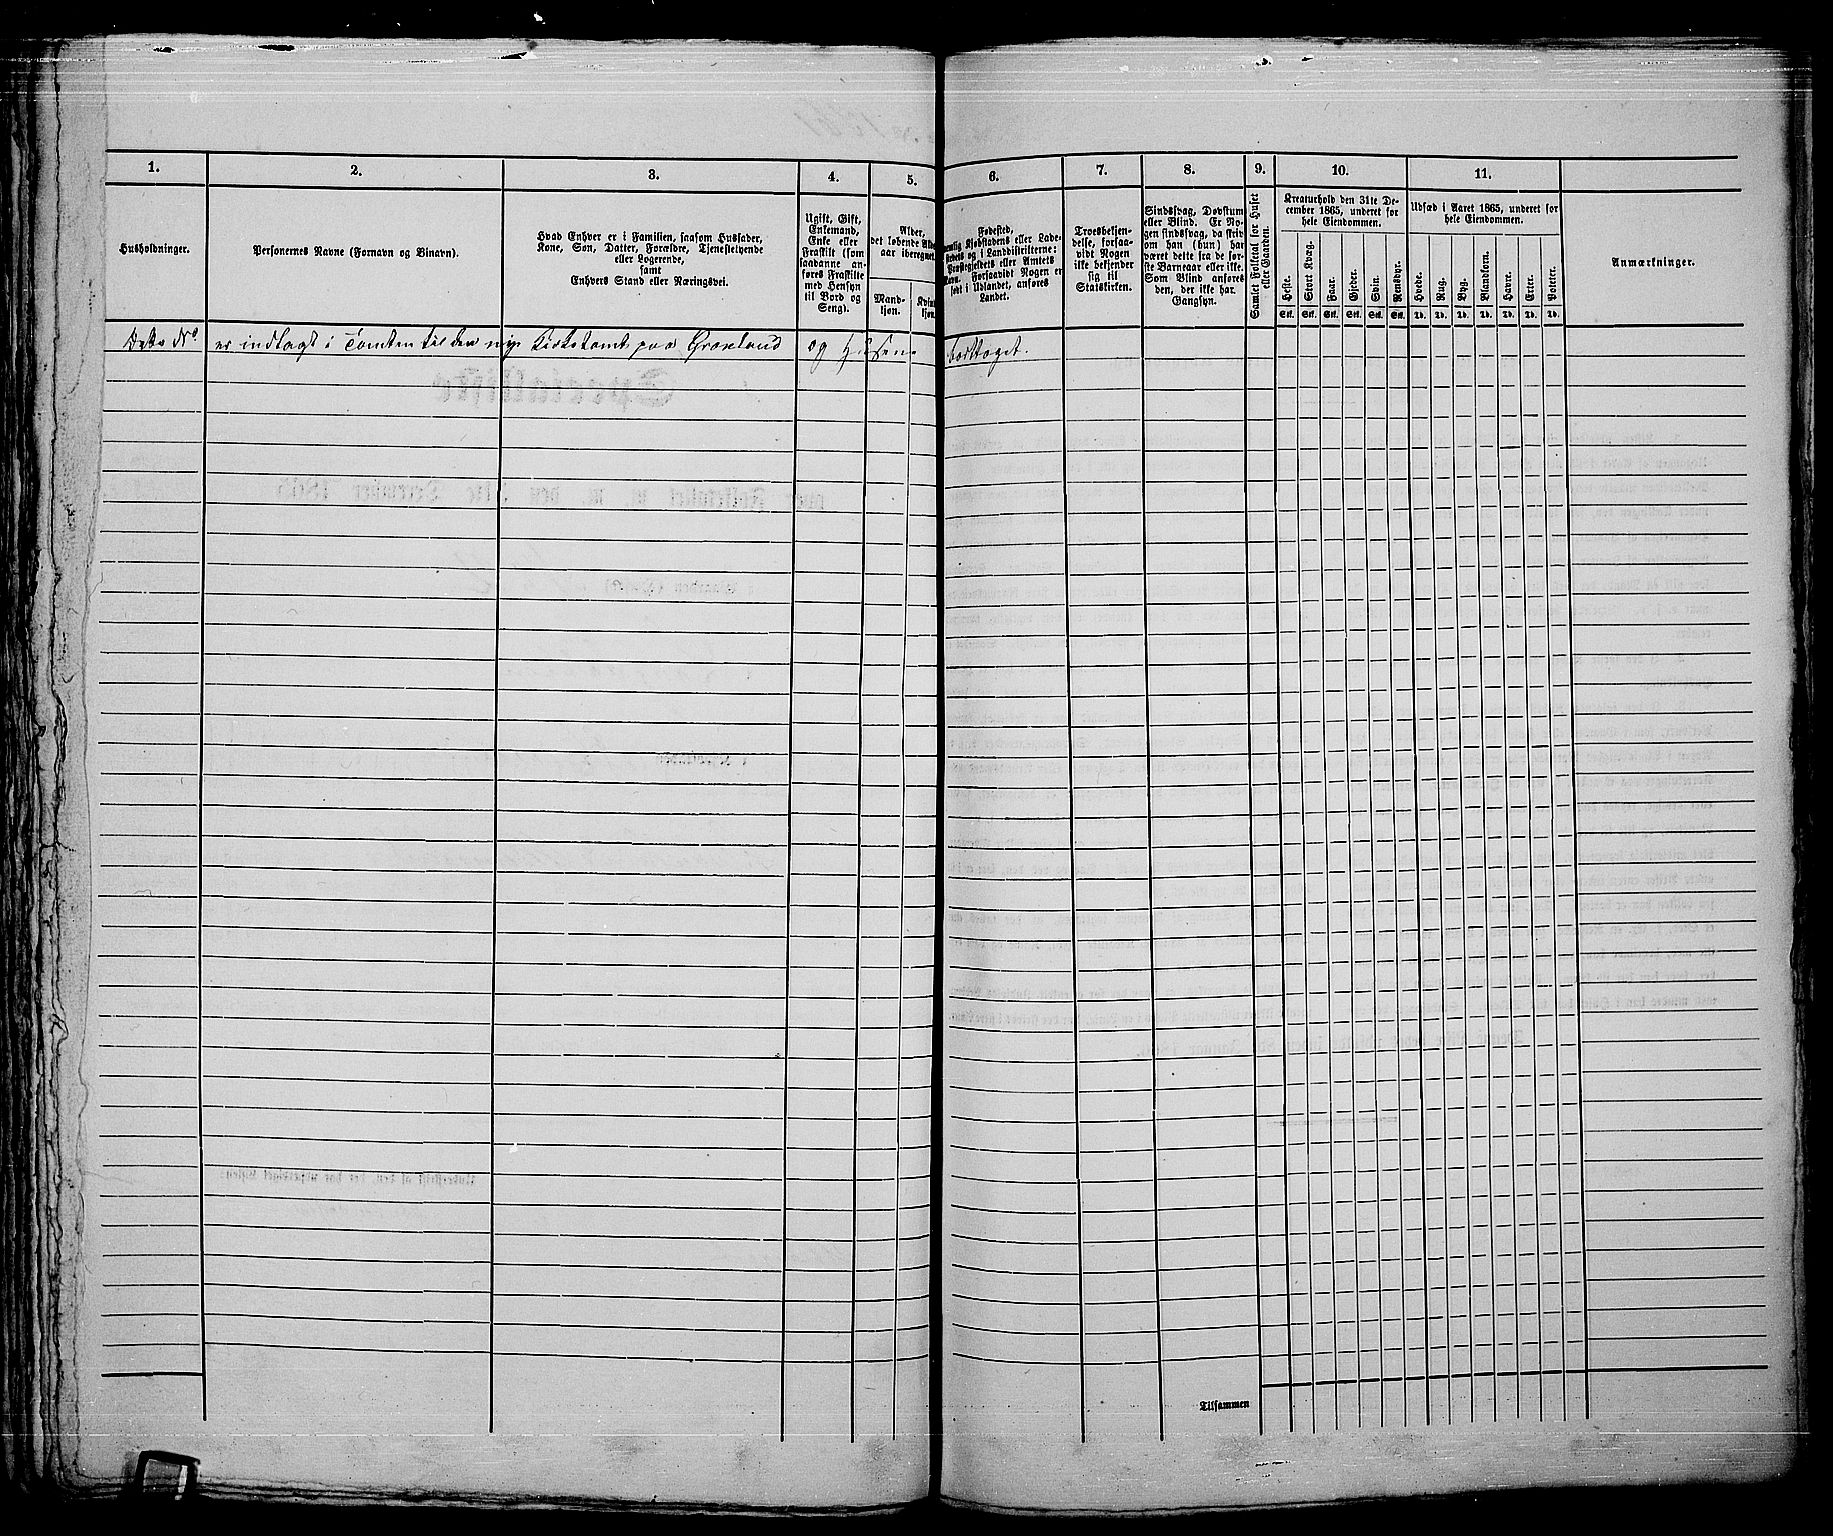 1. 2. 3. 4. 5. 6. 7. 8. 9. 10. 11.
Husholdninger.
Personernes Navne (Fornavn og Binavn).
Hvad Enhver er i Familien, saasom Husfader,
Kone, Søn, Datter, Forældre, Tjenestetyende
eller Logerende,
samt
Enhvers Stand eller Næringsvei.
Ugift, Gift,
Enkemand,
Enke eller
Fraskilt (som
saadanne an-
føres Fraskilte
med Hensyn
til Bord og
Seng).
Alder,
det løbende Alders-
aar iberegnet.
Mand-
kjøn.
Kvind-
kjøn.
Fødested,
nemlig Kjøbstadens eller Lade-
stedets og i Landdistrikterne:
Præstegjeldets eller Amtets
Navn. Forsaavidt Nogen er
født i Udlandet, anføres
Landet.
Troesbekjen-
delse, forsaa-
vidt Nogen
ikke bekjender
sig til
Statskirken.
Sindssvag, Døvstum
eller Blind. Er No-
gen sindssvag, da skriv
om han (hun) har
været dette fra de før-
ste Barneaar eller ikke.
Som Blind anføres
den, der ikke har
Gangsyn.
Samlet Folketal for Huset
eller Gaarden.
Kreaturhold den 31te De-
cember 1865, underet for
hele Eiendommen.
Heste. Stort Kvæg. Faar. Gjeder. Svin. Rensdyr.
Stk. Stk. Stk. Stk. Stk. Stk.
Udsæd i Aaret 1865, underet for
hele Eiendommen.
Hvede. Rug. Byg. Blandkorn. Havre. Erter. Poteter.
Td. Td. Td. Td. Td. Td. Td.
Anmærkninger.
Dette No er indtagt i Tomten til den nye Kirketomt paa Grønland og Husene borttaget.
Tilsammen